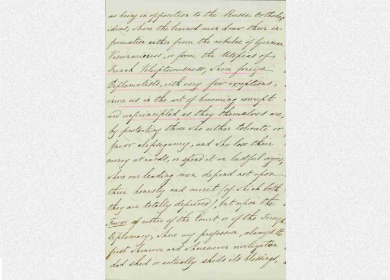 as being in opposition to the Russo Orthodox
ideas, where the learned men draw their in-
formation either from the of German
or from the Utopias of
French Voluptuousness, where foreign
Diplomatists, with very few exceptions
serve us in the art of becoming corrupt
and unprincipled as they themselves are,
by protecting those who either tolerate or
favor and who lose their
money at cards, or spend it in lustful orgies,
where our leading men depend not upon
their honesty and merit (of which both
they are totally deprived), but upon the
favor of either of the Court or of the Foreign
Diplomacy, where my profession, always the
first and investigation
did shed or actually sheds its blessings,